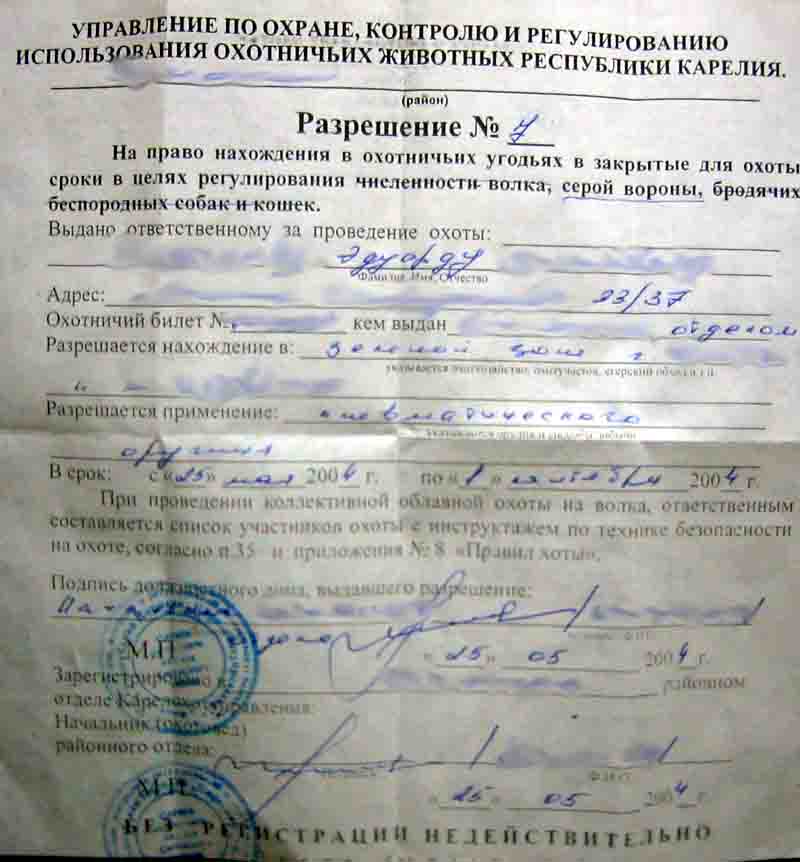 УПРАВЛЕНИЕ ПО ОХРАНЕ, КОНТРОЛЮ И РЕГУЛИРОВАНИЮ
ИСПОЛЬЗОВАНИЯ ОХОТНИЧЬИХ ЖИВОТНЫХ РЕСПУБЛИКИ КАРЕЛИЯ.
(район)
Разрешение № 7
На право нахождения в охотничьих угодьях в закрытые для охоты
сроки в целях регулирования численности волка, серой вороны, бродячих
беспородных собак и кошек.
Выдано ответственному за проведение охоты:
Эдуарду
Фамилия, Имя, Отчество
Адрес: 23/37
Охотничий билет № кем выдан отделом
Разрешается нахождение в: зеленой зоне г.
Разрешается применение: пневматического
оружия
В срок: с «25» мая 2004 г. по «1» сентября 2004 г.
При проведении коллективной облавной охоты на волка, ответственным
составляется список участников охоты с инструктажем по технике безопасности
на охоте, согласно п.35 и приложения № 8 «Правил хоты».
Подпись должностного лица, выдавшего разрешение:
М.П.
«25» 05 2004 г.
Зарегистрировано в районном
отделе Карелохотуправления:
Начальник (охотовед)
районного отдела:
М.П.
«25» 05 2004 г.
БЕЗ РЕГИСТРАЦИИ НЕДЕЙСТВИТЕЛЬНО